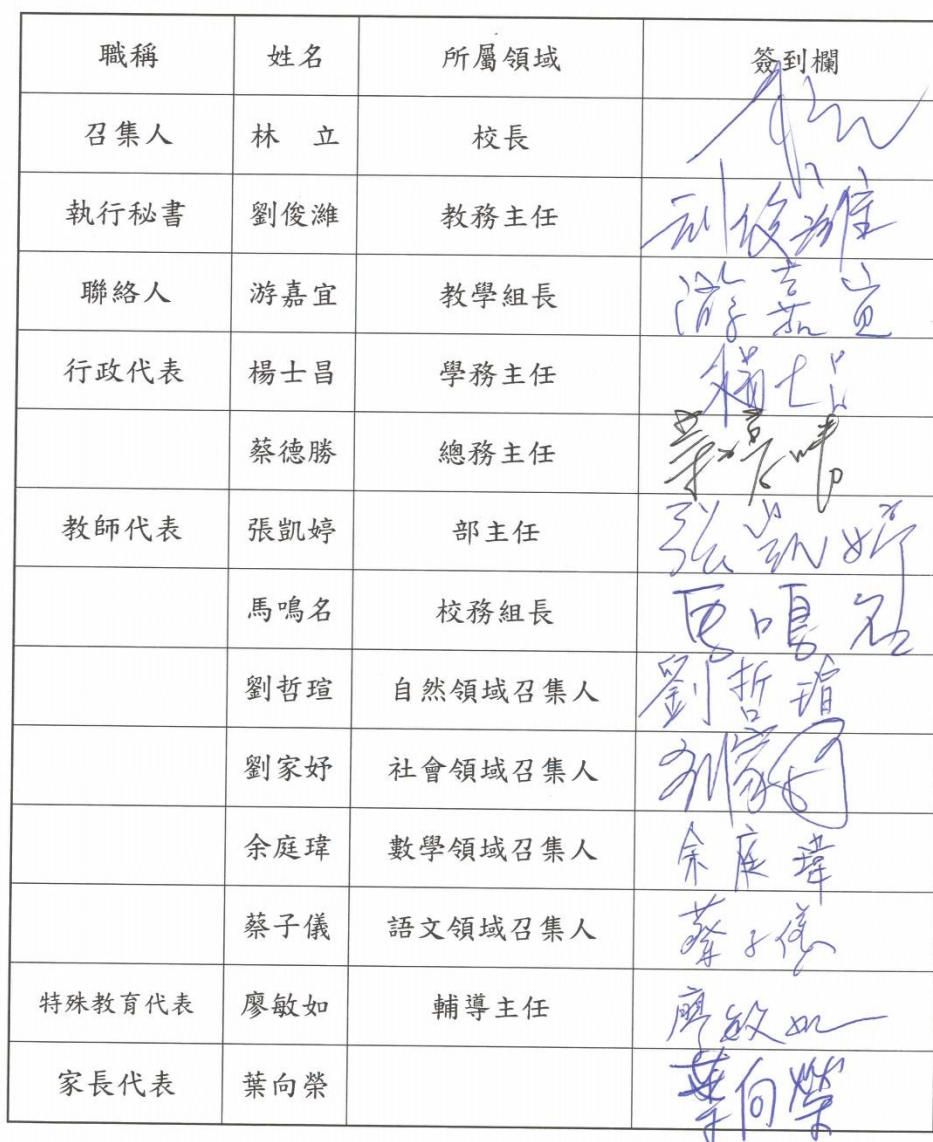 職稱 姓名 所屬領域 簽到欄
召集人 林 立 校長
執行秘書 劉俊濰 教務主任 刘俊濰
聯絡人 游嘉宜 教學組長 游嘉宜
行政代表 楊士昌 學務主任 楊士昌
蔡德勝 總務主任
教師代表 張凱婷 部主任 張凱婷
馬鳴名 校務組長 馬鳴名
劉哲瑄 自然領域召集人 劉哲瑄
劉家妤 社會領域召集人 刘家妤
余庭瑋 數學領域召集人 余庭瑋
蔡子儀 語文領域召集人 蔡子儀
特殊教育代表 廖敏如 輔導主任 廖敏如
家長代表 葉向榮 葉向榮